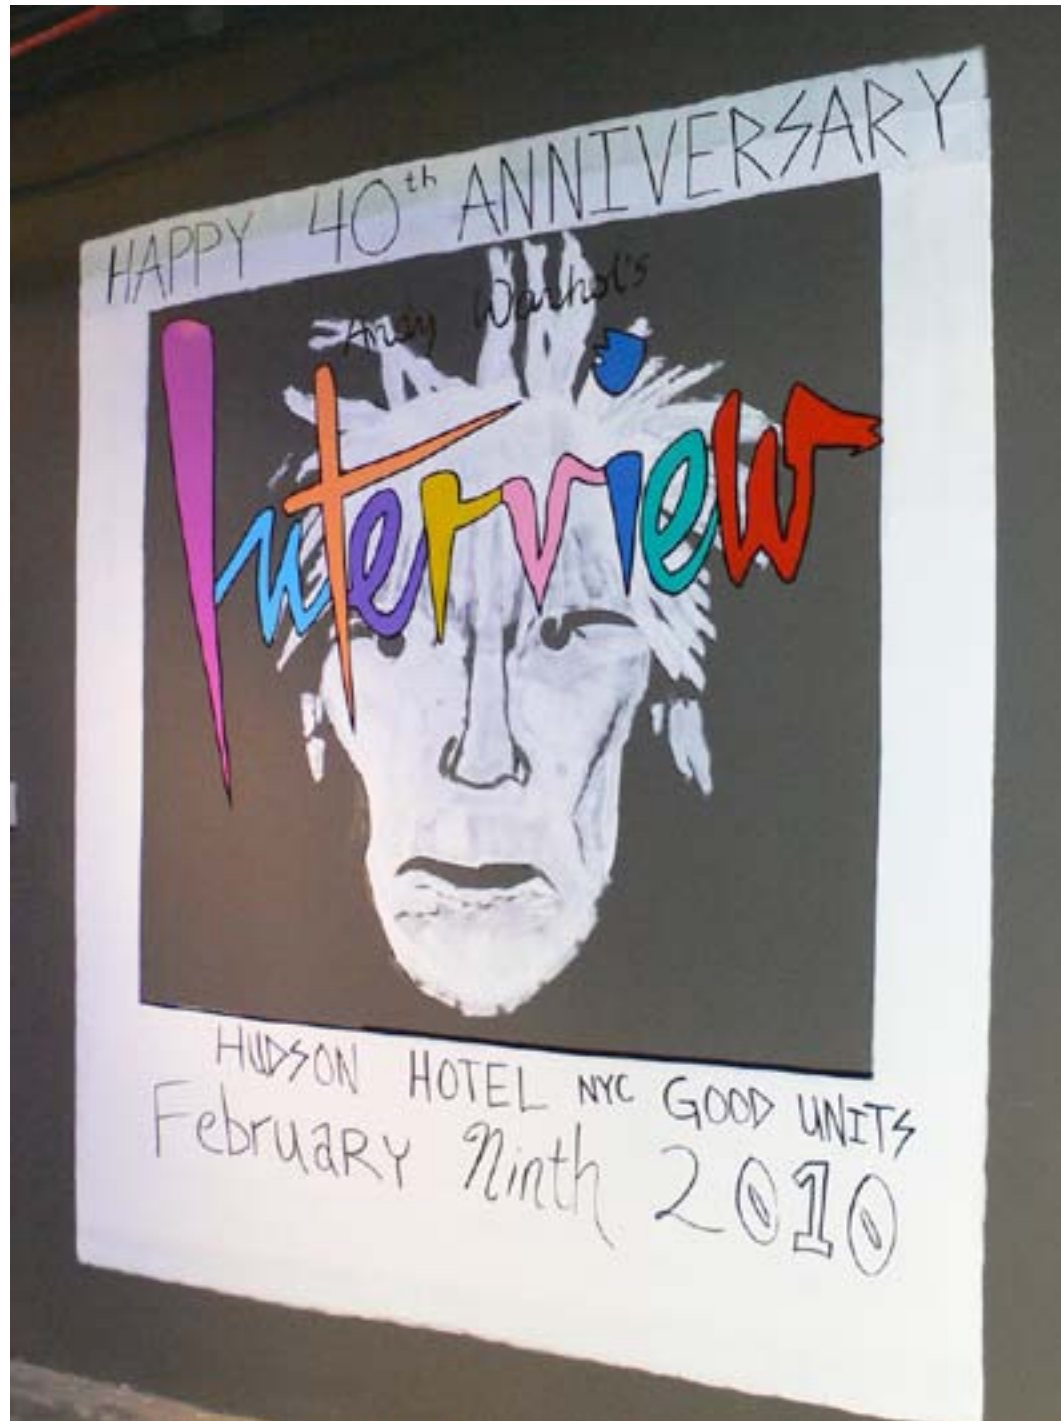 HAPPY 40th ANNIVERSARY
Andy Warhol's
Interview
HUDSON HOTEL NYC GOOD UNITS
February Ninth 2010